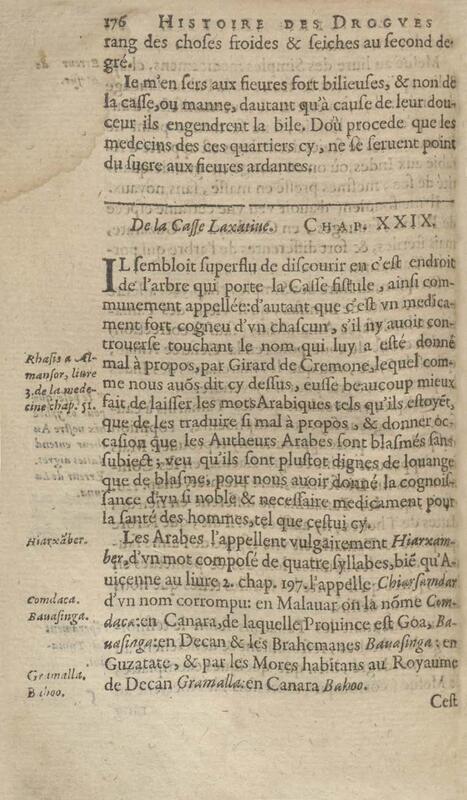 176 HISTOIRE DES DROGVES
rang des choses froides & seiches au second de-
gré.
Ie m'en sers aux fieures fort bilieuses, & non de
la casse, ou manne, dautant qu'à cause de leur dou-
ceur ils engendrent la bile. Doù procede que les
medecins des ces quartiers cy, ne se seruent point
du sucre aux fieures ardantes.
De la Casse Laxatiue. CHAP. XXIX.
IL sembloit superflu de discourir en c'est endroit
de l'arbre qui porte la Casse fistule, ainsi com-
munement appellée: d'autant que c'est vn medica-
ment fort cogneu d'vn chascun, s'il ny auoit con-
trouerse touchant le nom qui luy a esté donné
mal à propos, par Girard de Cremone, lequel com-
me nous auõs dit cy dessus, eusse beaucoup mieux
fait de laisser les mots Arabiques tels qu'ils estoyẽt,
que de les traduire si mal à propos, & donner oc-
casion que les Autheurs Arabes sont blasmés sans
subiect; veu qu'ils sont plustot dignes de louange
que de blasme, pour nous auoir donné la cognois-
sance d'vn si noble & necessaire medicament pour
la santé des hommes, tel que cestui cy.
Les Arabes l'appellent vulgairement Hiarxam-
ber, d'vn mot composé de quatre syllabes, biẽ qu'A-
uiçenne au liure 2. chap. 197. l'appelle Chiarsamdar
d'vn nom corrompu: en Malauar on la nõme Com-
daca: en Canara, de laquelle Prouince est Goa, Ba-
uasinga: en Decan & les Brahemanes Bauasinga: en
Guzarate, & par les Mores habitans au Royaume
de Decan Gramalla: en Canara Bahoo.
Cest
Rhasis a Al-
mansor, liure
3. de la mede-
cine chap. 51.
Hiarxãber.
Comdaca.
Bauasinga.
Gramalla.
Bahoo.